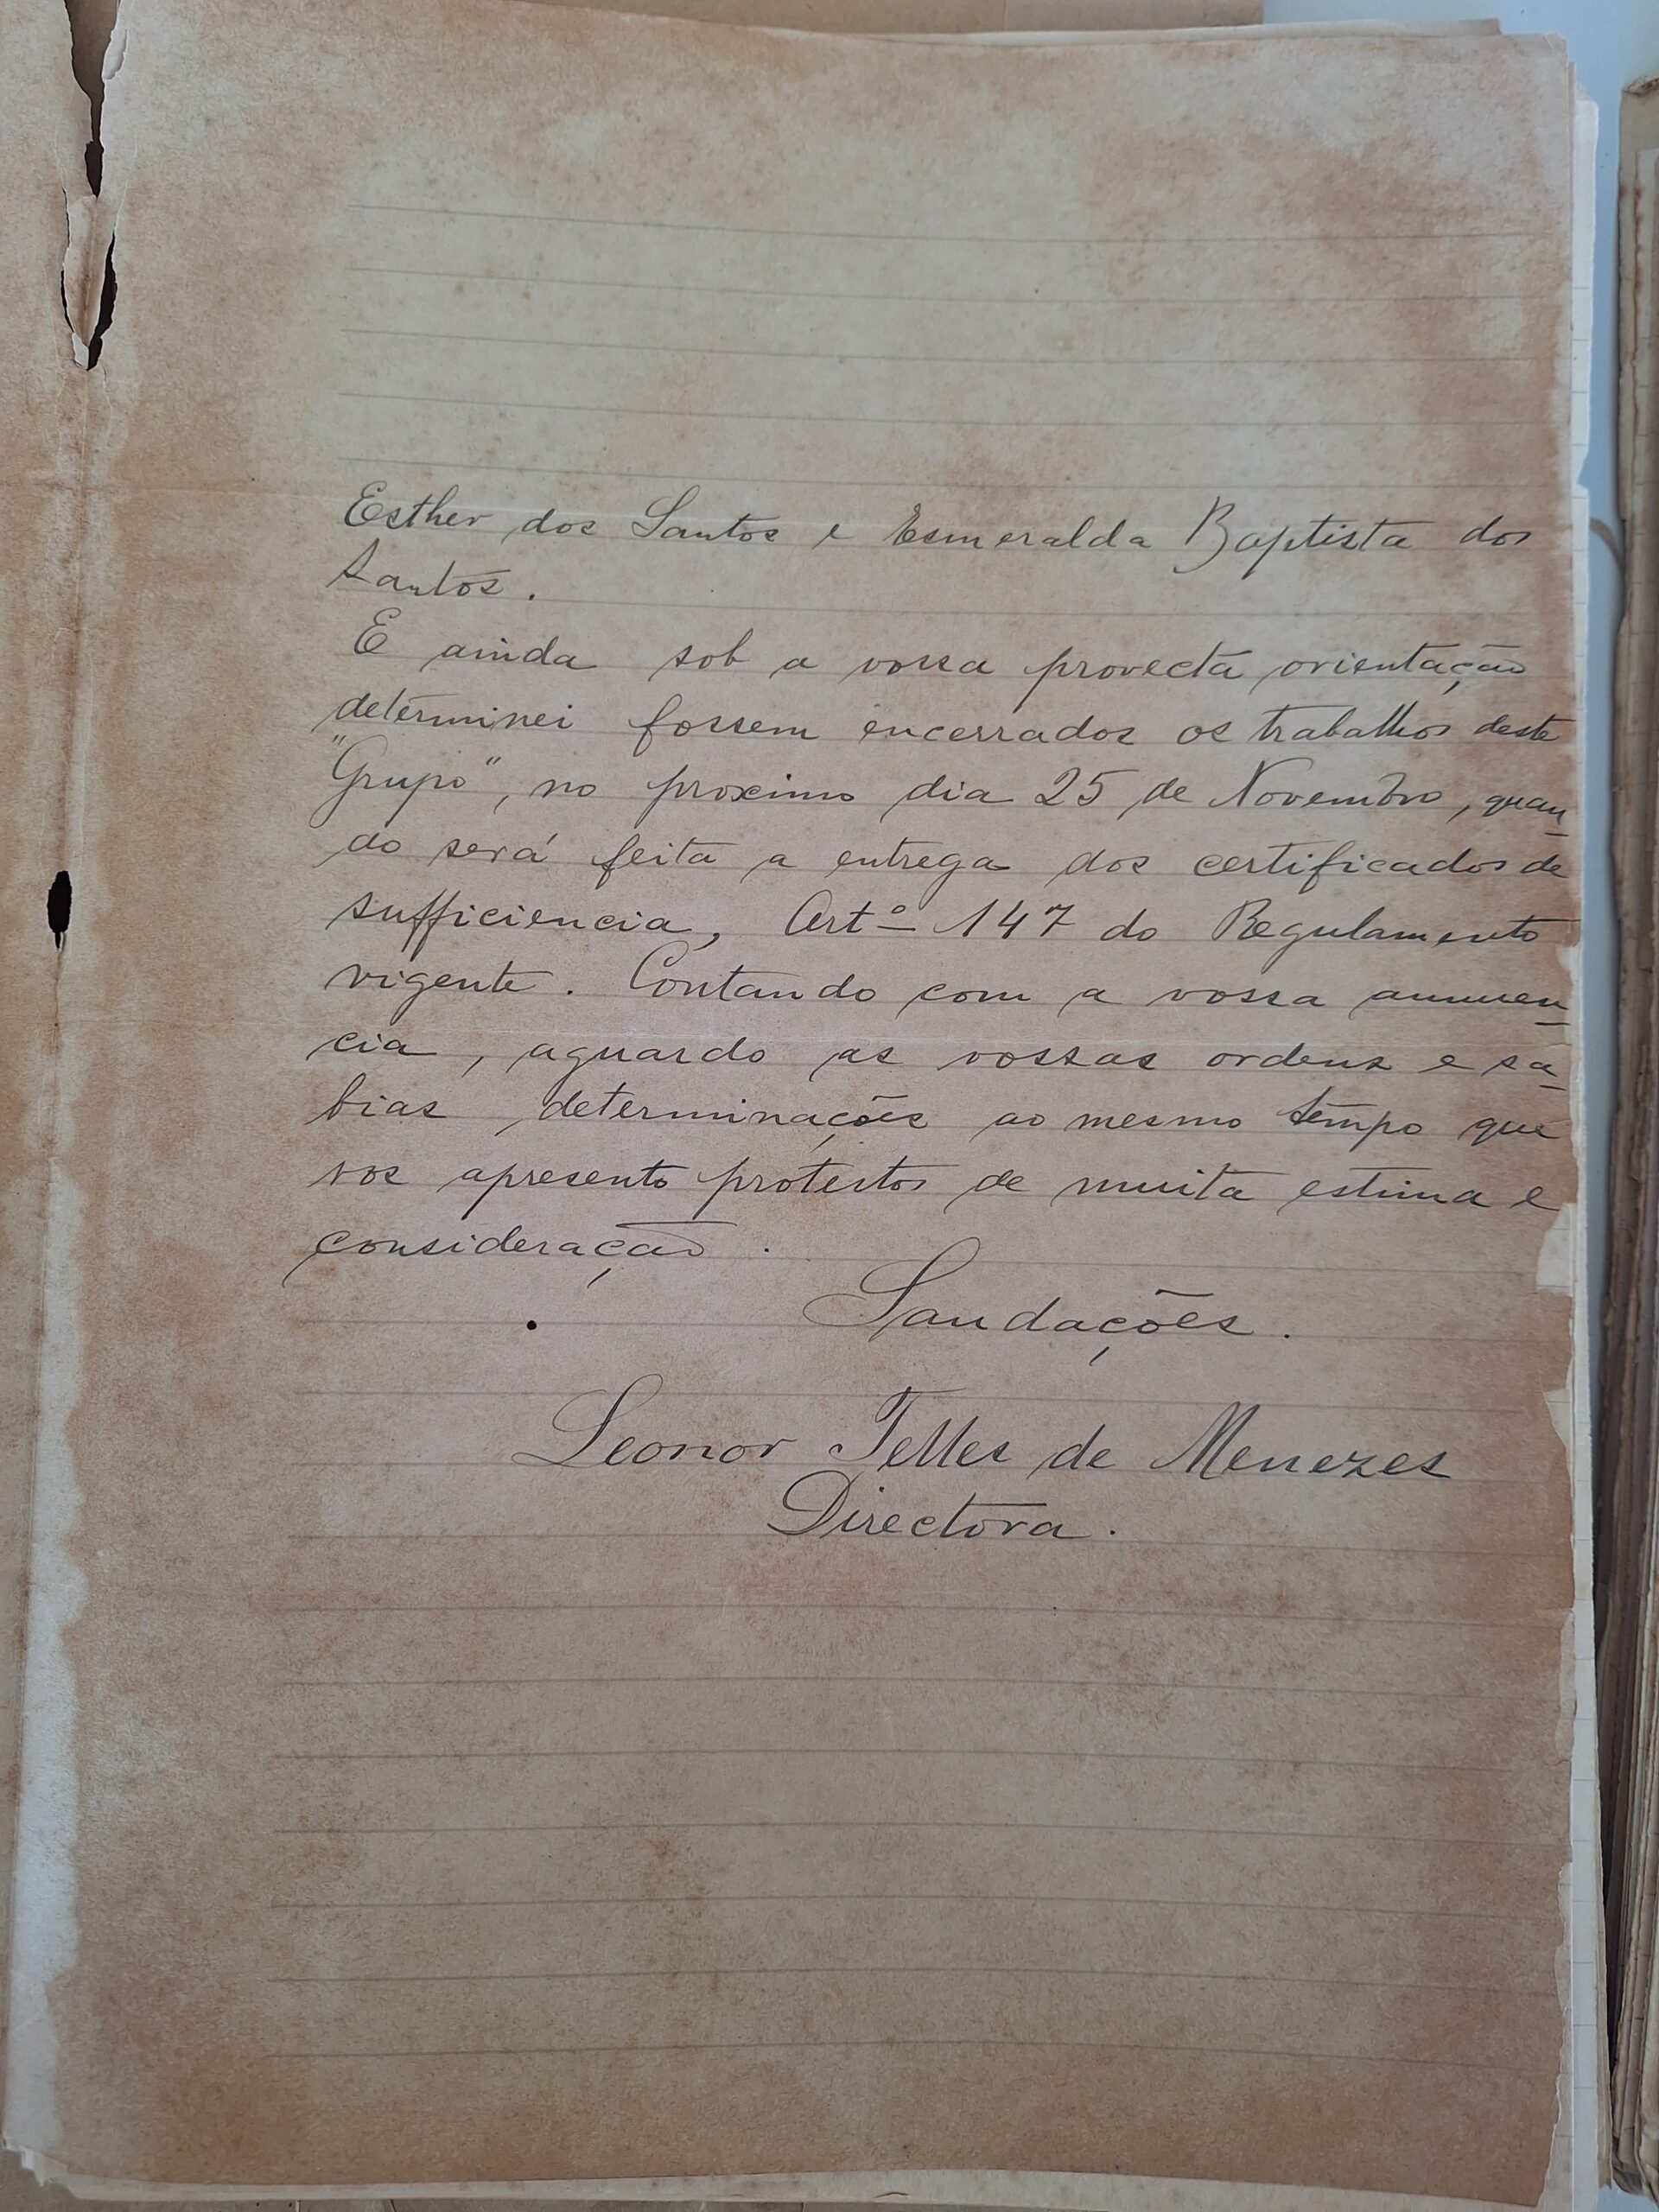 Esther dos Santos e Esmeralda Baptista dos
Santos.
E ainda sob a vossa provecta orientação
determinei fossem encerrados os trabalhos deste
"Grupo", no proximo dia 25 de Novembro, quan-
do será feita a entrega dos certificados de
sufficiencia, Artº 147 do Regulamento
vigente. Contando com a vossa annuen-
cia, aguardo as vossas ordens e sa-
bias determinações ao mesmo tempo que
vos apresento protestos de muita estima e
consideração.
Saudações.
Leonor Telles de Menezes
Directora.